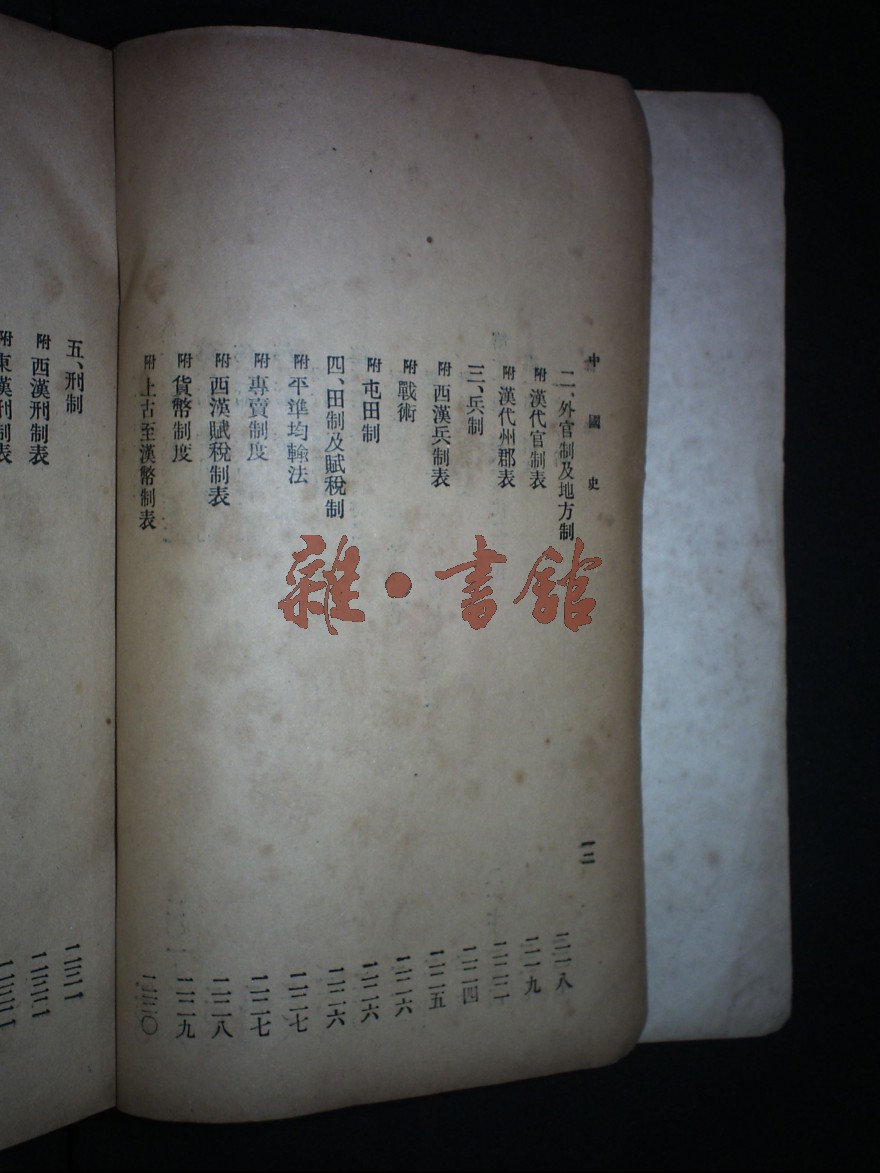 中國史
一二
二、外官制及地方制 二一八
附 漢代官制表 二一九
附 漢代州郡表 二二一
三、兵制 二二四
附 西漢兵制表 二二五
附 戰術 二二六
附 屯田制 二二六
四、田制及賦稅制 二二六
附 平準均輸法 二二七
附 專賣制度 二二七
附 西漢賦稅制表 二二八
附 貨幣制度 二二九
附 上古至漢幣制表 二三〇
五、刑制 二三一
附 西漢刑制表
附 東漢刑制表
雜·書館